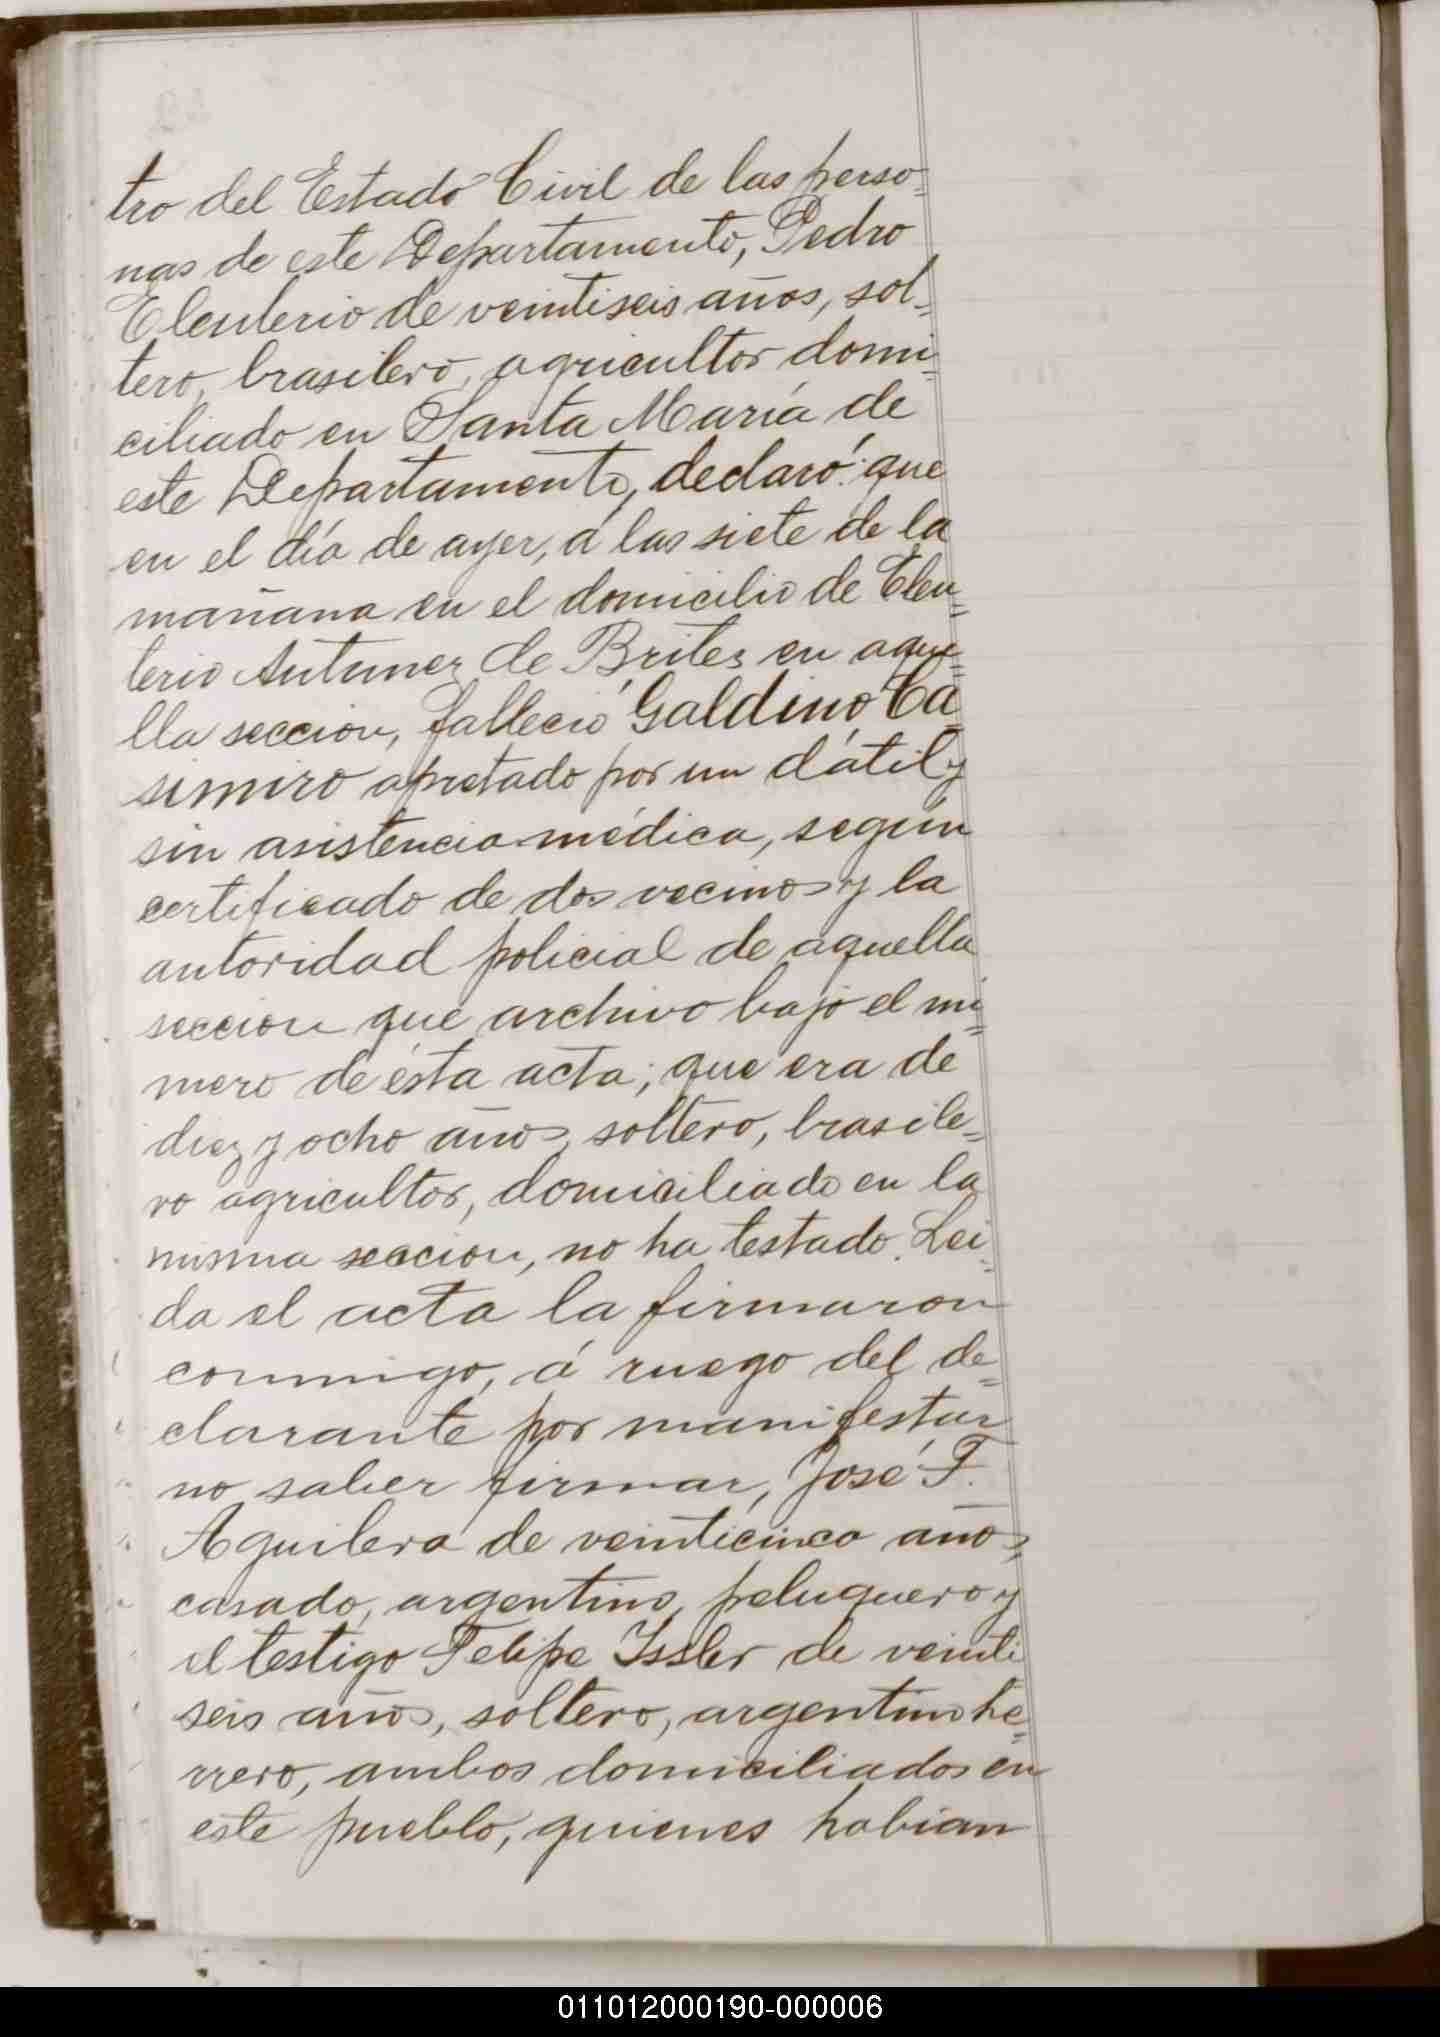 tro del Estado Civil de las perso=
nas de este Departamento, Pedro
Eleuterio de veintiseis años, sol=
tero, brasilero, agricultor domi=
ciliado en Santa María de
este Departamento, declaró: que
en el día de ayer, á las siete de la
mañana en el domicilio de Eleu=
terio Antunez de Britez en aque=
lla seccion, falleció Galdino Ca=
simiro apretado por un dátil y
sin asistencia médica, según
certificado de dos vecinos y la
autoridad policial de aquella
seccion que archivo bajo el nú=
mero de ésta acta; que era de
diez y ocho años, soltero, brasile=
ro agricultor, domiciliado en la
misma seccion, no ha testado. Lei=
da el acta la firmaron
conmigo, á ruego del de=
clarante por manifestar
no saber firmar, José F.
Aguilera de veinticinco años,
casado, argentino, peluquero y
el testigo Felipe Issler de veinti
seis años, soltero, argentino he=
rrero, ambos domiciliados en
este pueblo, quienes habian
011012000190-000006